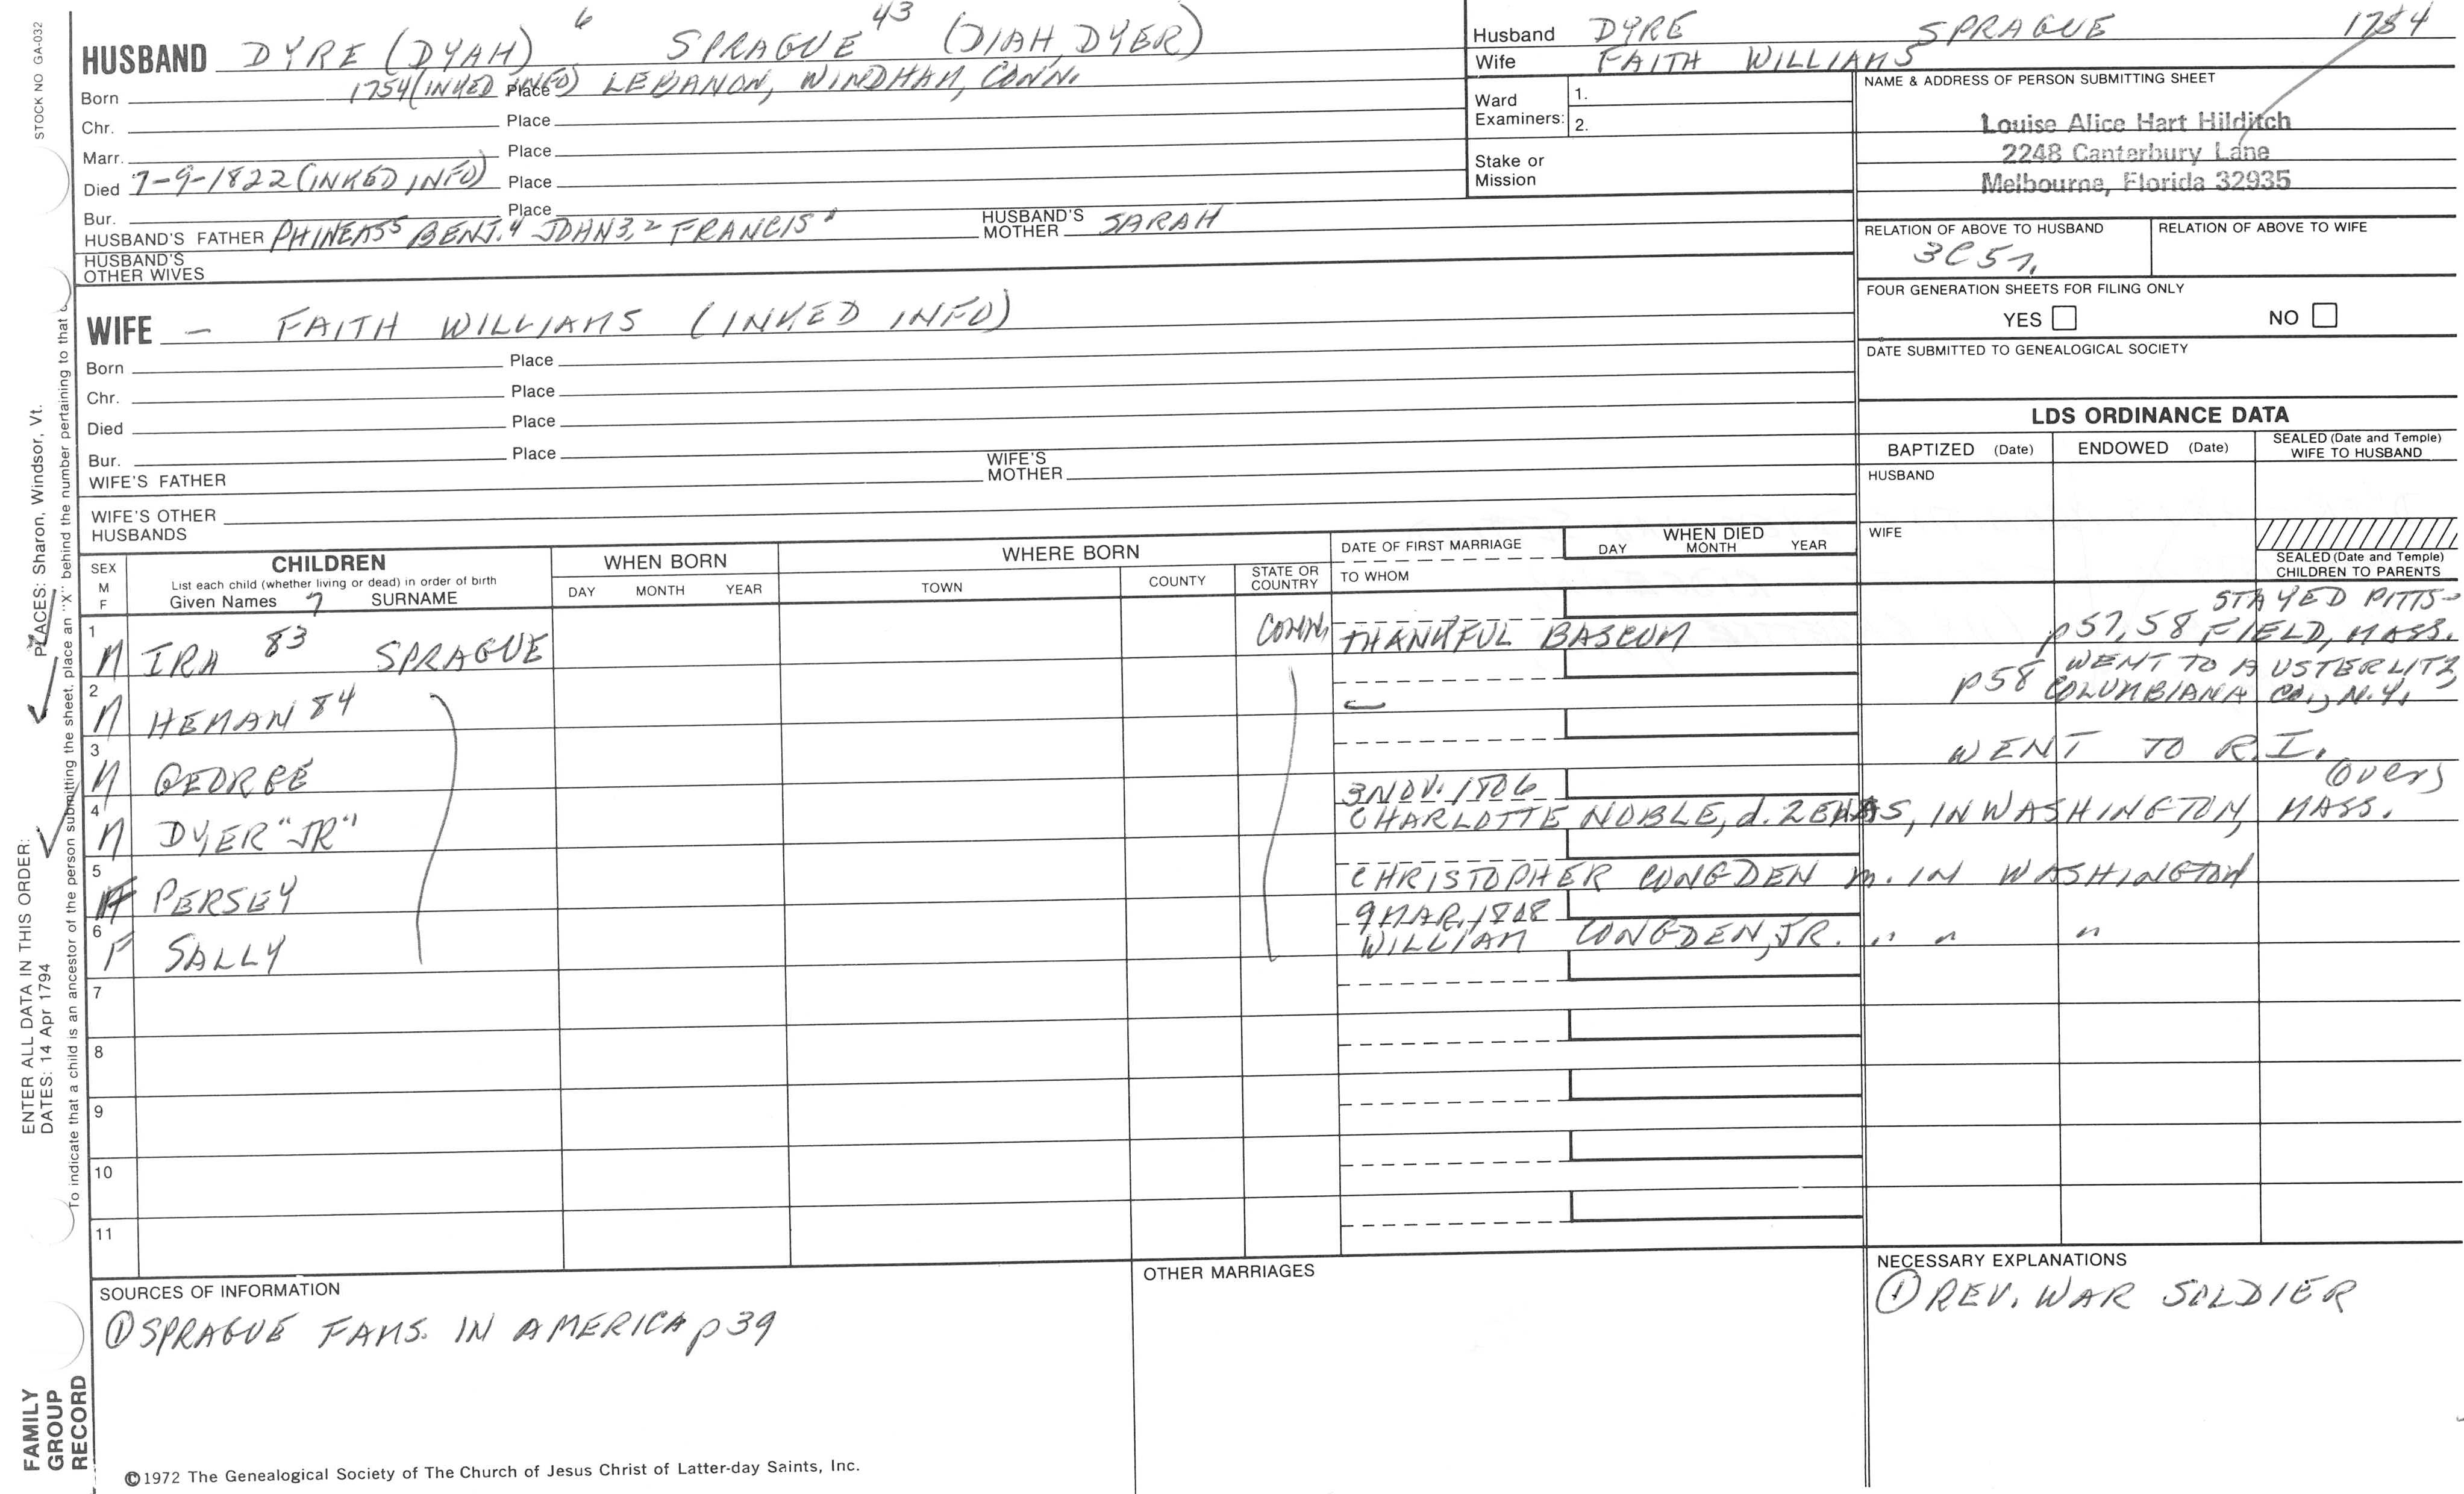 STOCK NO GA-032
HUSBAND DYRE (DYAH) 6 SPRAGUE 43 (DIAH, DYER)
Born 1754 (INKED INFO) Place LEBANON, WINDHAM, CONN.
Chr. Place
Marr. Place
Died 7-9-1822 (INKED INFO) Place
Bur. Place
HUSBAND'S FATHER PHINEAS5 BENJ.4 JOHN3,2 FRANCIS1 HUSBAND'S MOTHER SARAH
HUSBAND'S OTHER WIVES
WIFE — FAITH WILLIAMS (INKED INFO)
Born Place
Chr. Place
Died Place
Bur. Place
WIFE'S FATHER WIFE'S MOTHER
WIFE'S OTHER HUSBANDS
Husband DYRE SPRAGUE 1754
Wife FAITH WILLIAMS
Ward Examiners: 1.
2.
Stake or Mission
NAME & ADDRESS OF PERSON SUBMITTING SHEET
Louise Alice Hart Hilditch
2248 Canterbury Lane
Melbourne, Florida 32935
RELATION OF ABOVE TO HUSBAND RELATION OF ABOVE TO WIFE
3C5
FOUR GENERATION SHEETS FOR FILING ONLY
YES NO
DATE SUBMITTED TO GENEALOGICAL SOCIETY
LDS ORDINANCE DATA
BAPTIZED (Date) ENDOWED (Date) SEALED (Date and Temple) WIFE TO HUSBAND
HUSBAND
WIFE
SEALED (Date and Temple) CHILDREN TO PARENTS
SEX M F
CHILDREN
List each child (whether living or dead) in order of birth
Given Names 7 SURNAME
WHEN BORN
DAY MONTH YEAR
WHERE BORN
TOWN COUNTY STATE OR COUNTRY
DATE OF FIRST MARRIAGE
TO WHOM
WHEN DIED
DAY MONTH YEAR
STAYED PITTS-
1 M IRA 83 SPRAGUE CONN. THANKFUL BASCUM p57,58 FIELD, MASS.
WENT TO AUSTERLITZ,
2 M HEMAN 84 — p58 COLUMBIANA CO., N.Y.
3 M GEORGE WENT TO R.I.
(over)
3 NOV. 1806
4 M DYER "JR" CHARLOTTE NOBLE, d. IN WASHINGTON, MASS.
5 F PERSEY CHRISTOPHER CONGDEN m. IN WASHINGTON
9 MAR. 1808
6 F SALLY WILLIAM CONGDEN, JR. " " "
7
8
9
10
11
SOURCES OF INFORMATION
① SPRAGUE FAMS. IN AMERICA p39
OTHER MARRIAGES
NECESSARY EXPLANATIONS
① REV. WAR SOLDIER
©1972 The Genealogical Society of The Church of Jesus Christ of Latter-day Saints, Inc.
FAMILY GROUP RECORD
ENTER ALL DATA IN THIS ORDER:
DATES: 14 Apr 1794 PLACES: Sharon, Windsor, Vt.
To indicate that a child is an ancestor of the person submitting the sheet, place an "X" behind the number pertaining to that